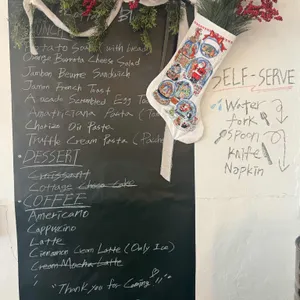 LUNCH
Potato Soup with bread
Orange Burrata Cheese Salad
Jambon Beurre Sandwich
Jamon French Toast
Avocado Scrambled Egg
Amatriciana Pasta
Chorizo Oil Pasta
Truffle Cream Pasta
• DESSERT
Croissant
Cottage Choco Cake
• COFFEE
Americano
Cappucino
Latte
Cinnamon Cream Latte (Only Ice)
Cream Mocha Latte
"Thank you for Coming"
SELF-SERVE
Water
fork
Spoon
Knife
Napkin